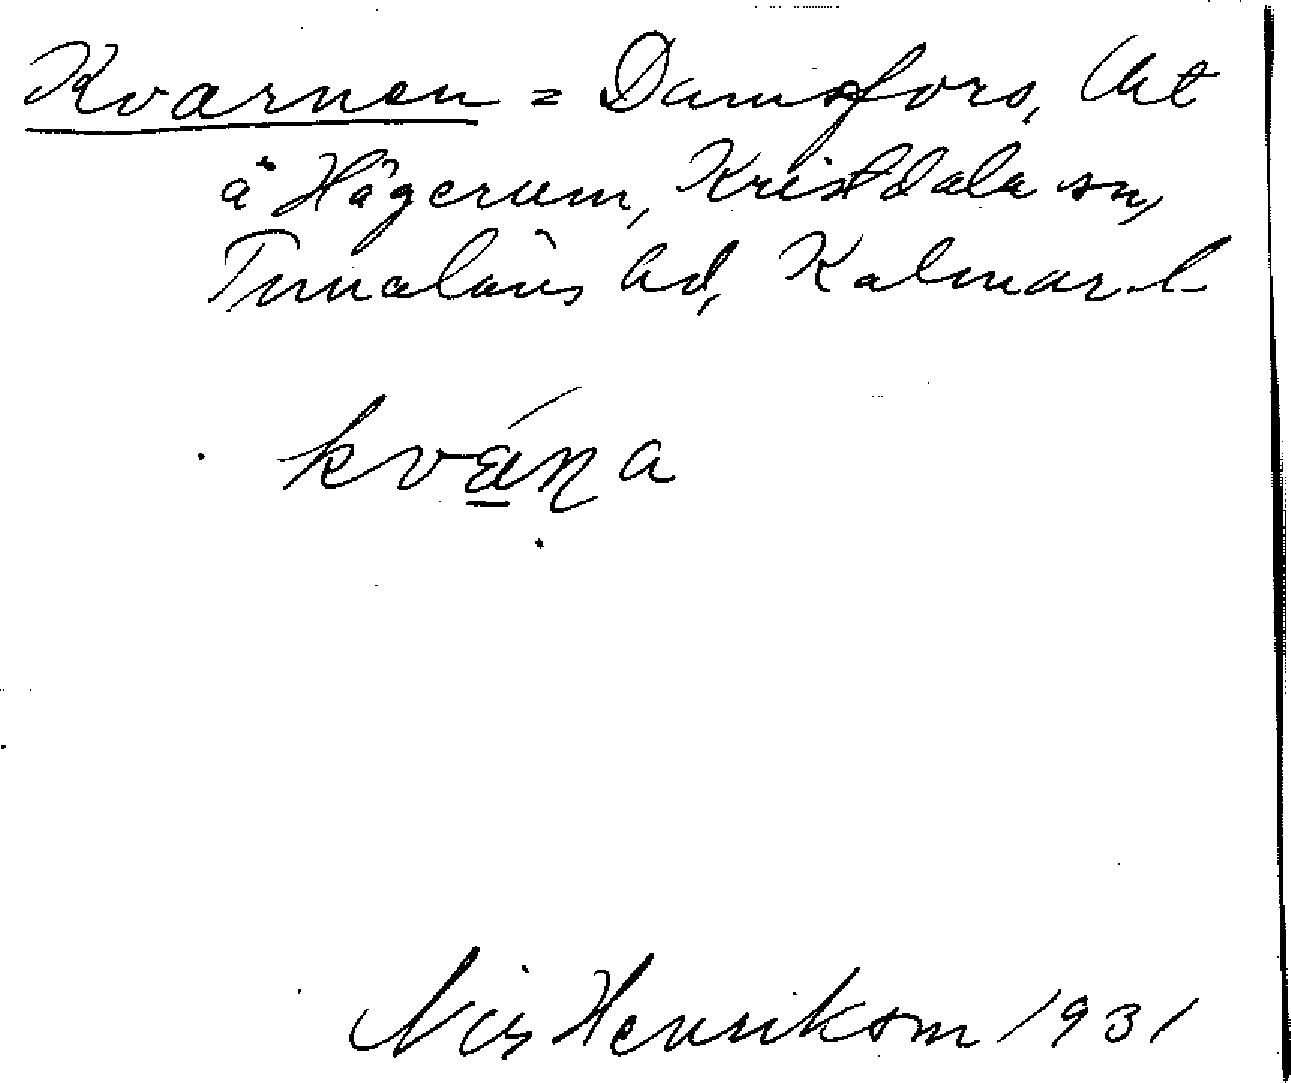 Kvarnen = Damsfors, lht
å Hägerum, Kristdala sn,
Tunaläns hd, Kalmar l
kváṉa
Nils Henrikson 1931